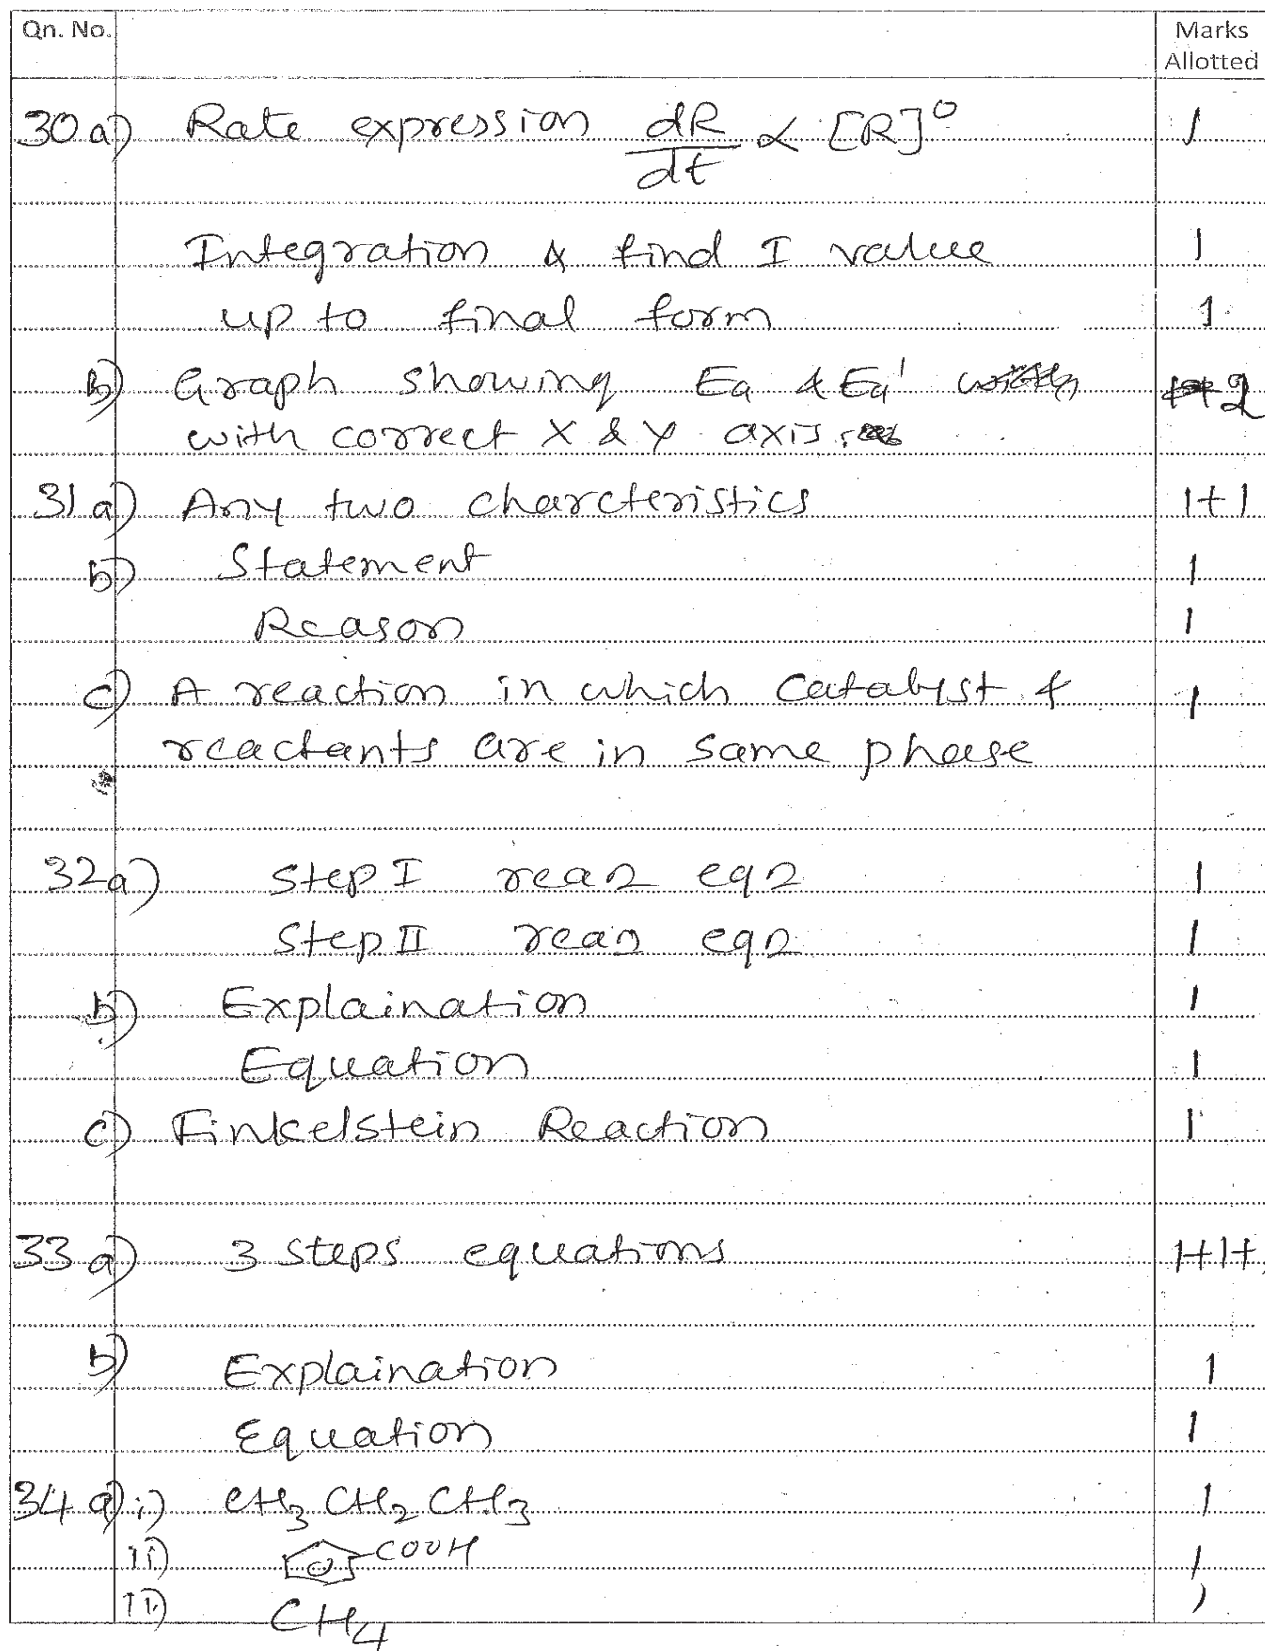 Qn. No. Marks Allotted
30 a) Rate expression dR/dt ∝ [R]⁰ 1
Integration & find I value 1
up to final form 1
b) Graph showing Ea & Ea' 2
with correct X & Y axis.
31 a) Any two charcteristics 1+1
b) Statement 1
Reason 1
c) A reaction in which Catalyst & 1
reactants are in same phase
32 a) Step I rean eqn 1
Step II rean eqn 1
b) Explaination 1
Equation 1
c) Finkelstein Reaction 1
33 a) 3 steps equations 1+1+
b) Explaination 1
Equation 1
34 a) i) CH₃ CH₂ CH₃ 1
ii) COOH 1
CH₄ 1